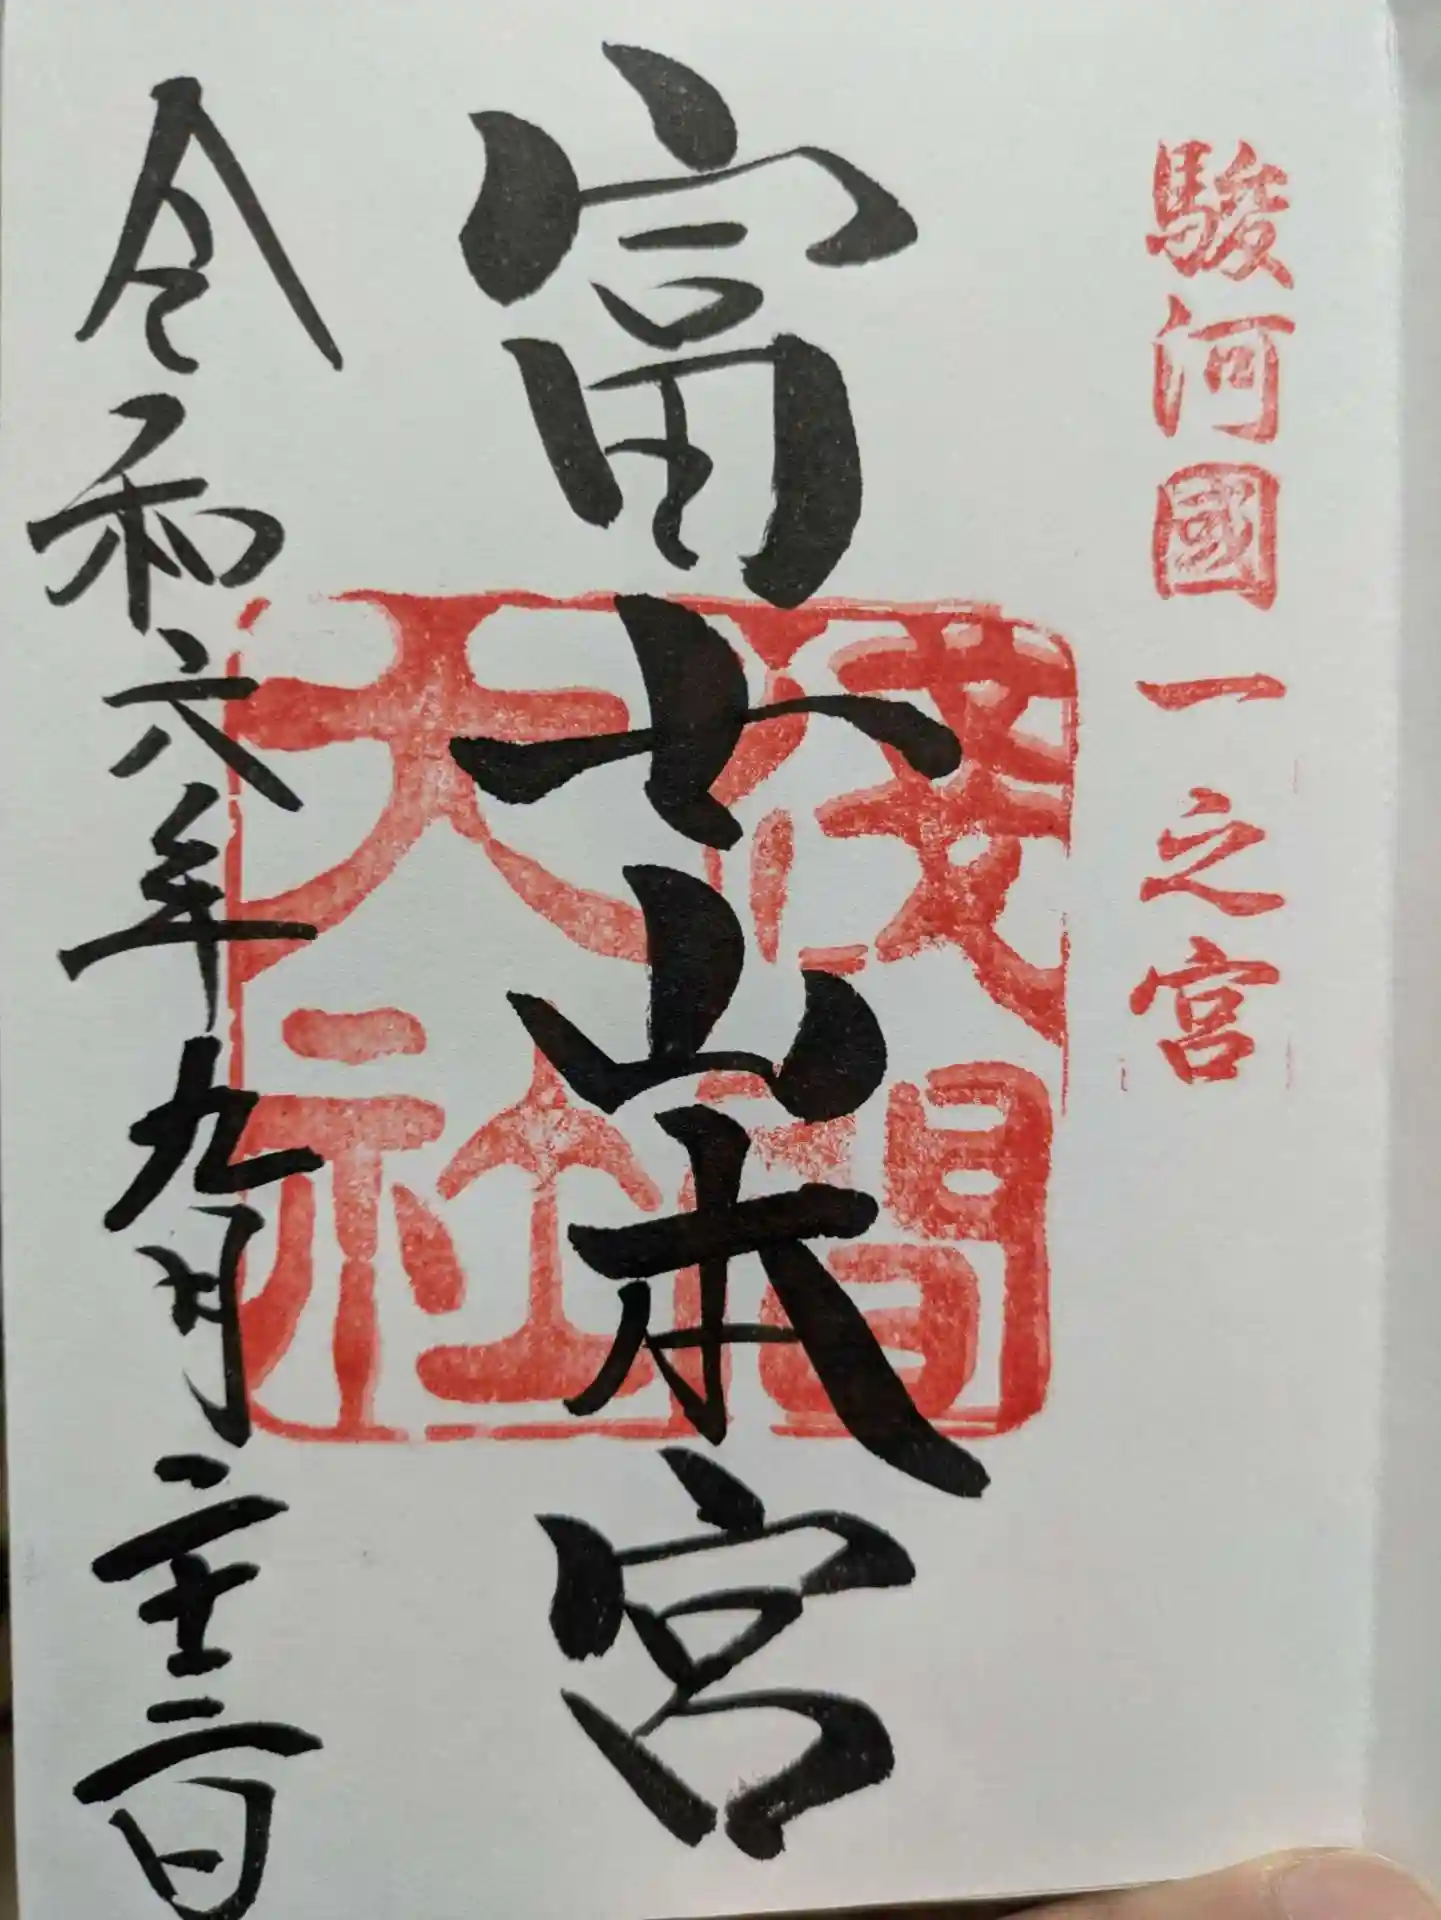 駿河國一之宮
富士山本宮
淺間
大社
令和六年九月二十三日